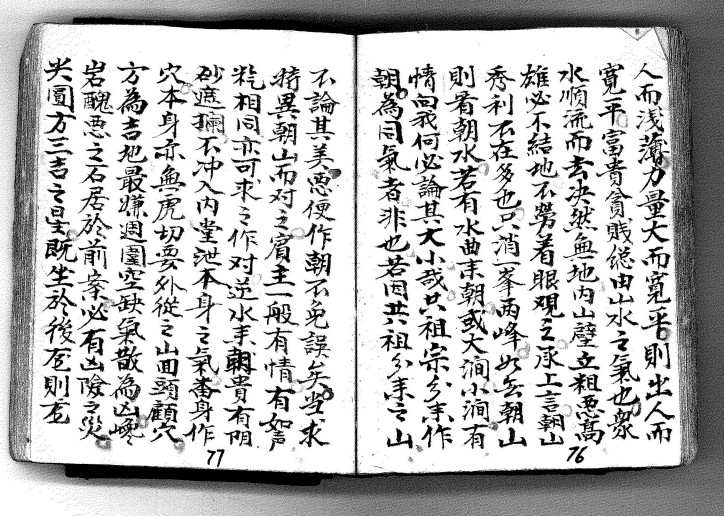 人而浅薄力量大而寬平則出人而
寬平富貴貧賤総由山水之氣也衆
水順流而去决然無地内山壁立粗惡高
雄必不結地不勞着眼观之承上言朝山
秀利不在多也只消一峯两峰如無朝山
則看朝水若有水曲来朝或大涧小涧有
情向我何必論其大小哉只祖宗分来作
朝為同氣者非也若因共祖分来之山
76
不論其美惡便作朝不免誤矣当求
特異朝山而对之賓主一般有情有如
乾相同亦可求之作对逆水来朝貴有明
砂遮攔不冲入内堂泄本身之氣畨身作
穴本身亦無虎切要外從之山面頭顧穴
方為吉地最嫌週圍空缺氣散為凶巉
岩醜惡之石居於前案必有凶險之災
尖圓方三吉之星既坐於後
77